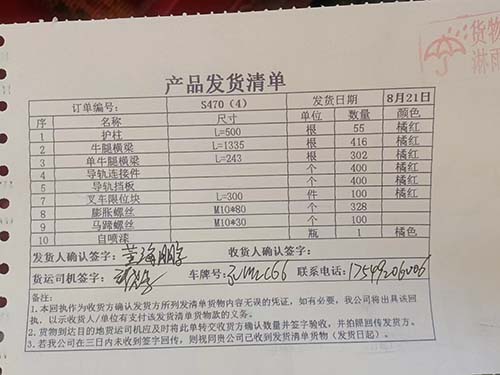 货物
淋雨
产品发货清单
订单编号: S470（4） 发货日期 8月21日
序 名称 尺寸 单位 数量 颜色
1 护柱 L=500 根 55 橘红
2 牛腿横梁 L=1335 根 416 橘红
3 单牛腿横梁 L=243 根 302 橘红
4 导轨连接件 个 400 橘红
5 导轨挡板 个 400 橘红
7 叉车限位块 L=300 件 100 橘红
8 膨胀螺丝 M10*80 个 328
9 马蹄螺丝 M10*30 个 100
10 自喷漆 瓶 1 橘色
发货人确认签字: 收货人确认签字:
货运司机签字: 车牌号: 联系电话:
备注:
1.本回执作为收货方确认发货方所列发清单货物内容无误的凭证，如有必要，我公司将出具该回
执，以示收货人/单位有支付该发货清单货物款的义务。
2.货物到达目的地货运司机应及时将此单转交收货方确认数量并签字验收，并拍照回传发货方。
3.若我公司在三日内未收到签字回传，则视同贵公司已收到发货清单货物（发货日起）。